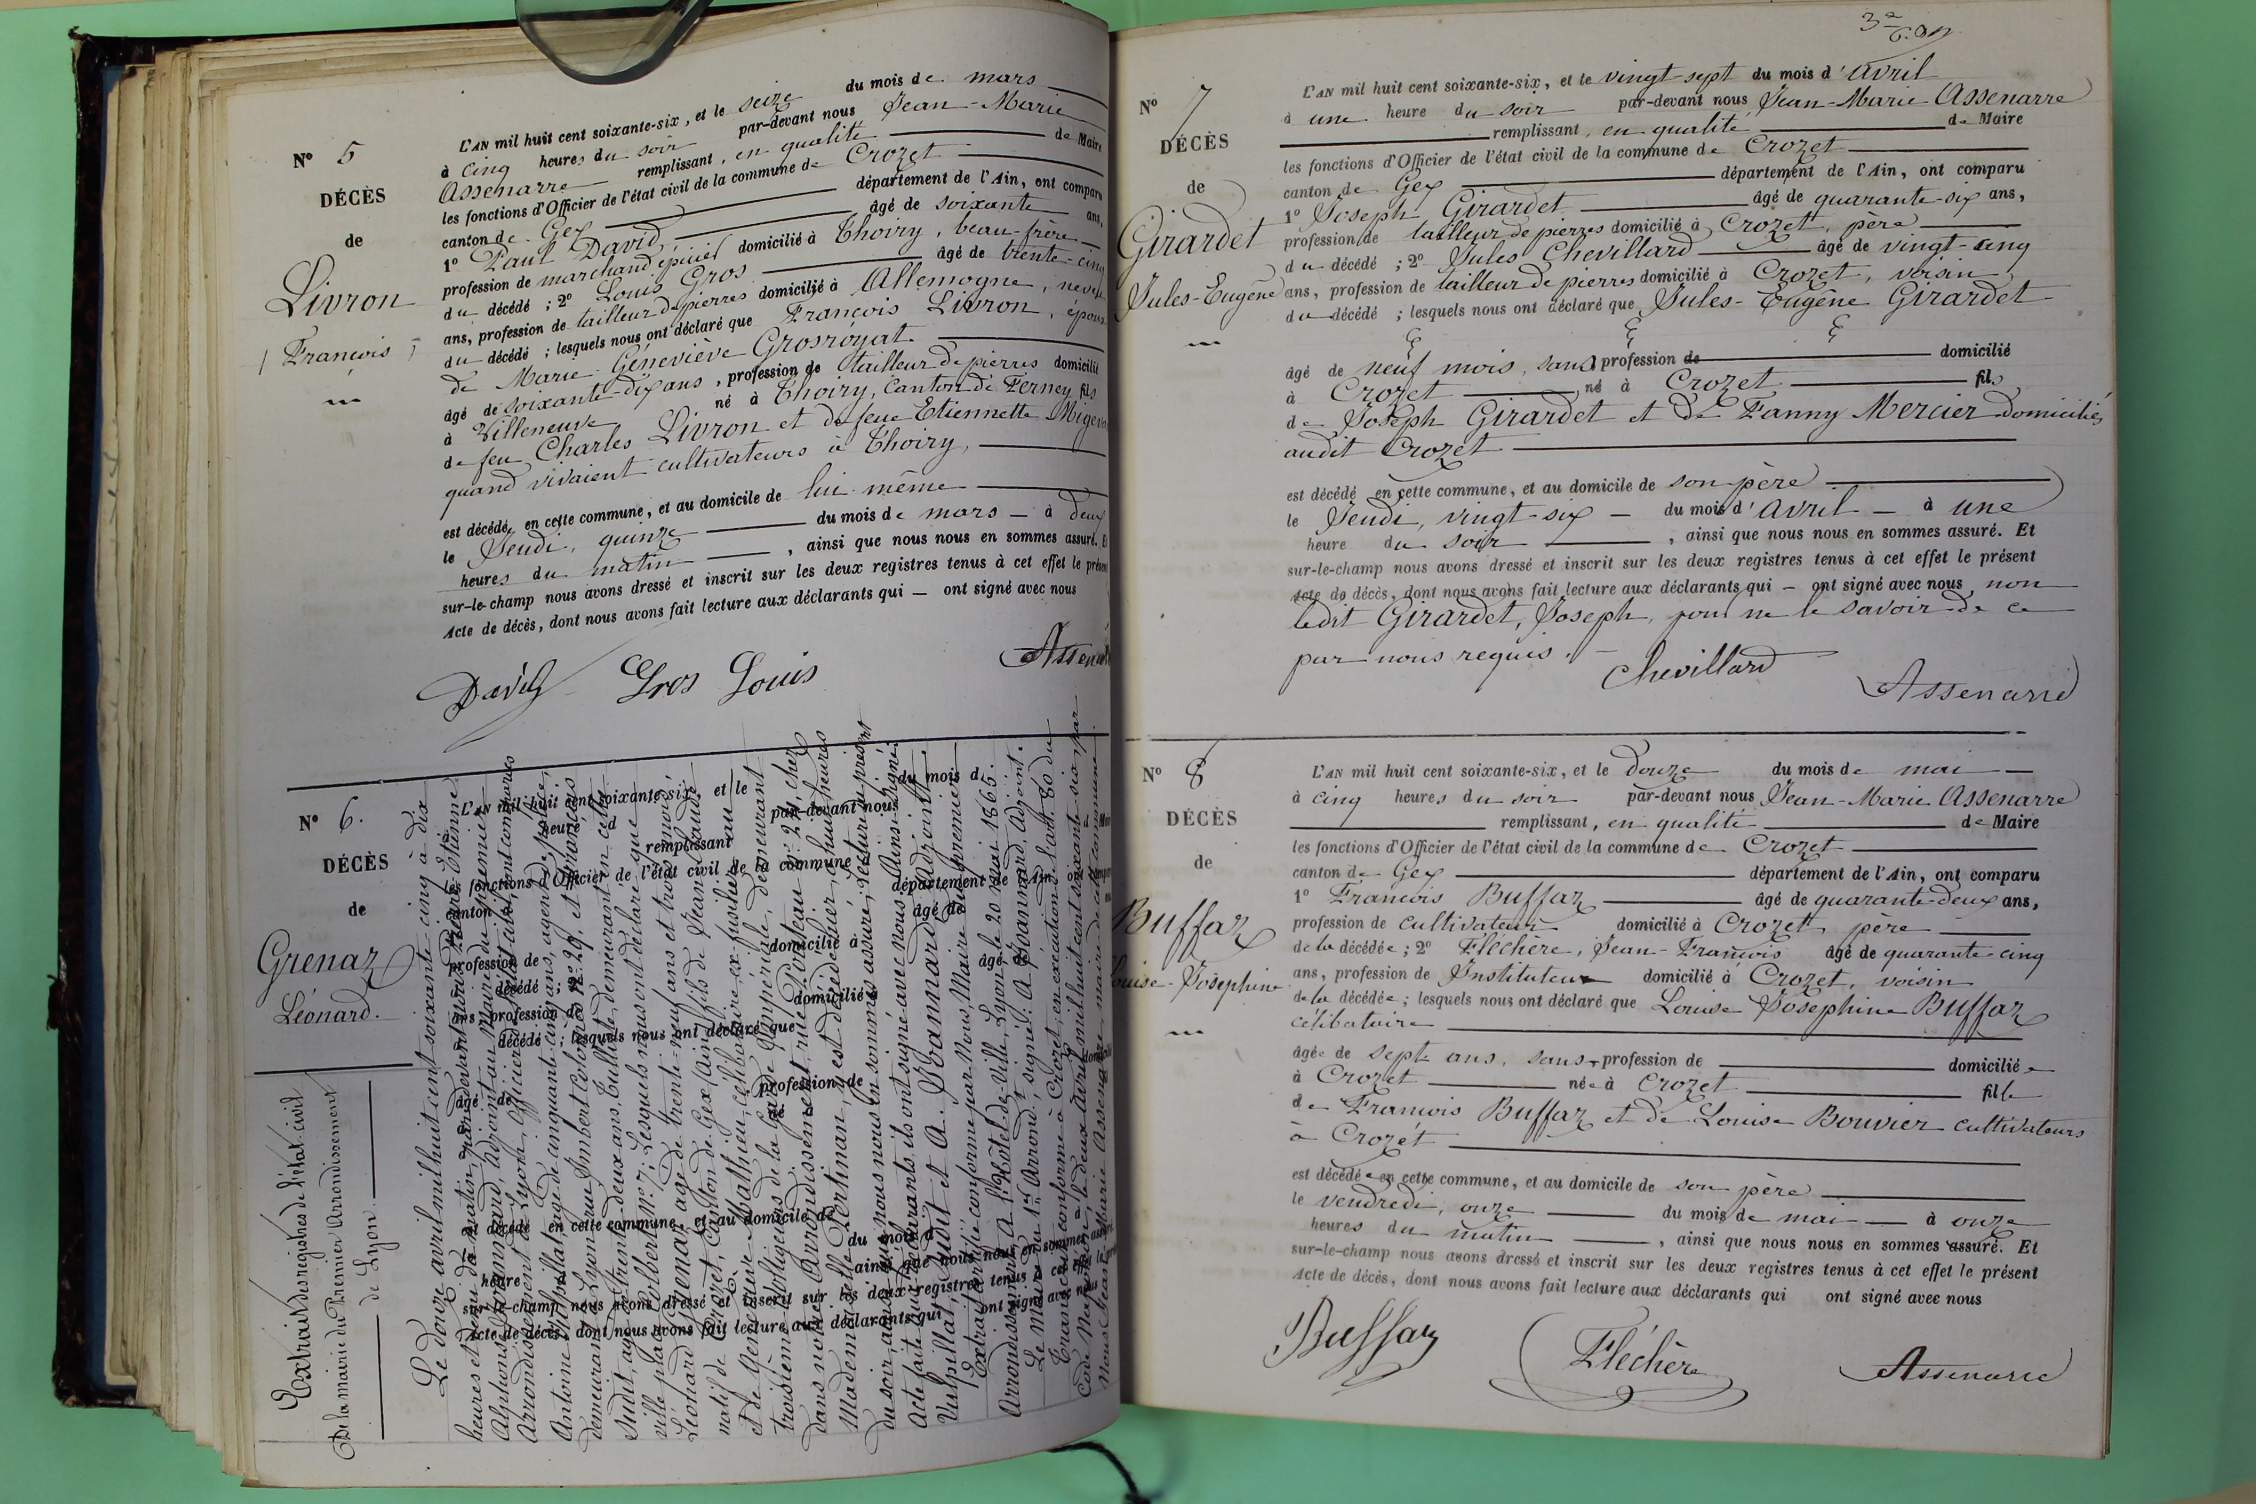 N° 5
DÉCÈS
de
Livron
François
L'AN mil huit cent soixante-six, et le seize du mois de mars
à cinq heures du soir par-devant nous Jean-Marie
Assenarre remplissant, en qualité de Maire
les fonctions d'Officier de l'état civil de la commune de Crozet
canton de Gex département de l'Ain, ont comparu
1° Paul David, âgé de soixante ans,
profession de marchand épicier domicilié à Thoiry, beau-frère
du décédé ; 2° Louis Gros âgé de trente-cinq
ans, profession de tailleur de pierres domicilié à Allemogne, neveu
du décédé ; lesquels nous ont déclaré que François Livron, époux
de Marie Géneviève Grosroyat.
âgé de soixante-dix ans, profession de tailleur de pierres domicilié
à Villeneuve né à Thoiry, Canton de Ferney fils
de feu Charles Livron et de feue Etiennette
quand vivaient cultivateurs à Thoiry,
est décédé en cette commune, et au domicile de lui-même
le Jeudi, quinze du mois de mars à deux
heures du matin, ainsi que nous nous en sommes assuré. Et
sur-le-champ nous avons dressé et inscrit sur les deux registres tenus à cet effet le présent
Acte de décès, dont nous avons fait lecture aux déclarants qui — ont signé avec nous
David Gros Louis
N° 6.
DÉCÈS
de
Grenaz
Léonard.
Extrait des registres de l'état civil
De la mairie du Premier Arrondissement
de Lyon
Le douze avril mil huit cent soixante cinq à dix
heures et demi du matin, par devant nous
Alphonse Joannard, adjoint au Maire du premier
Arrondissement de Lyon, officier
Antoine Vulpillat, âgé de cinquante cinq ans, agent de police,
demeurant à Lyon rue Imbert Colomès n° 29, et François
Sudit, âgé de trente deux ans, demeurant en cette
ville place Colbert n° 7; Lesquels nous ont déclaré que
Léonard Grenaz, âgé de trente-neuf ans et trois mois,
natif de Crozet, Canton de Gex (Ain) fils de Jean Claude
et de Geneviève Mathieu, célibataire, ex-fusilier au
troisième Voltigeurs de la Garde Impériale, demeurant
dans notre Arrondissement, rue n° 24 chez
Mademoiselle Pertinan, y est décédé hier, à huit heures
du soir, ainsi que nous nous en sommes assuré; lecture du présent
Acte faite aux déclarants, ils ont signé avec nous. Ainsi signé:
Vulpillat, Sudit et A. Joannard Adjoint.
Extrait certifié conforme par Nous, Maire du premier
Arrondissement, à l'Hotel de Ville, Lyon le 20 mai 1865.
Le Maire du 1er Arrond.t signé: A. Joannard, Adjoint.
Transcrit conforme à Crozet, en exécution de l'art. 80 du
Code Napoléon, le deux avril mil huit cent soixante six par
Nous Jean Marie Assenarre, maire de cette commune.
N° 7
DÉCÈS
de
Girardet
Jules-Eugène
L'AN mil huit cent soixante-six, et le vingt-sept du mois d'avril
à une heure du soir par-devant nous Jean-Marie Assenarre
remplissant, en qualité de Maire
les fonctions d'Officier de l'état civil de la commune de Crozet
canton de Gex département de l'Ain, ont comparu
1° Joseph Girardet âgé de quarante-six ans,
profession de tailleur de pierres domicilié à Crozet, père
du décédé ; 2° Jules Chevillard âgé de vingt-cinq
ans, profession de tailleur de pierres domicilié à Crozet, voisin
du décédé ; lesquels nous ont déclaré que Jules-Eugène Girardet
âgé de neuf mois, sans profession de domicilié
à Crozet né à Crozet fils
de Joseph Girardet et de Fanny Mercier domiciliés
audit Crozet
est décédé en cette commune, et au domicile de son père
le Jeudi, vingt-six — du mois d'avril — à une
heure du soir, ainsi que nous nous en sommes assuré. Et
sur-le-champ nous avons dressé et inscrit sur les deux registres tenus à cet effet le présent
Acte de décès, dont nous avons fait lecture aux déclarants qui — ont signé avec nous, non
ledit Girardet, Joseph, pour ne le savoir de ce
par nous requis.
Chevillard
Assenarre
N° 8
DÉCÈS
de
Buffaz
Louise-Joséphine
L'AN mil huit cent soixante-six, et le douze du mois de mai
à cinq heures du soir par-devant nous Jean-Marie Assenarre
remplissant, en qualité de Maire
les fonctions d'Officier de l'état civil de la commune de Crozet
canton de Gex département de l'Ain, ont comparu
1° François Buffaz âgé de quarante-deux ans,
profession de cultivateur domicilié à Crozet, père
de la décédée ; 2° Fléchère, Jean-François âgé de quarante-cinq
ans, profession de Instituteur domicilié à Crozet, voisin
de la décédée ; lesquels nous ont déclaré que Louise Josephine Buffaz
célibataire
âgée de sept ans, sans profession de domiciliée
à Crozet née à Crozet fille
de François Buffaz et de Louise Bouvier cultivateurs
à Crozet
est décédée en cette commune, et au domicile de son père
le vendredi, onze du mois de mai à onze
heures du matin, ainsi que nous nous en sommes assuré. Et
sur-le-champ nous avons dressé et inscrit sur les deux registres tenus à cet effet le présent
Acte de décès, dont nous avons fait lecture aux déclarants qui ont signé avec nous
Buffaz
Fléchère
Assenarre